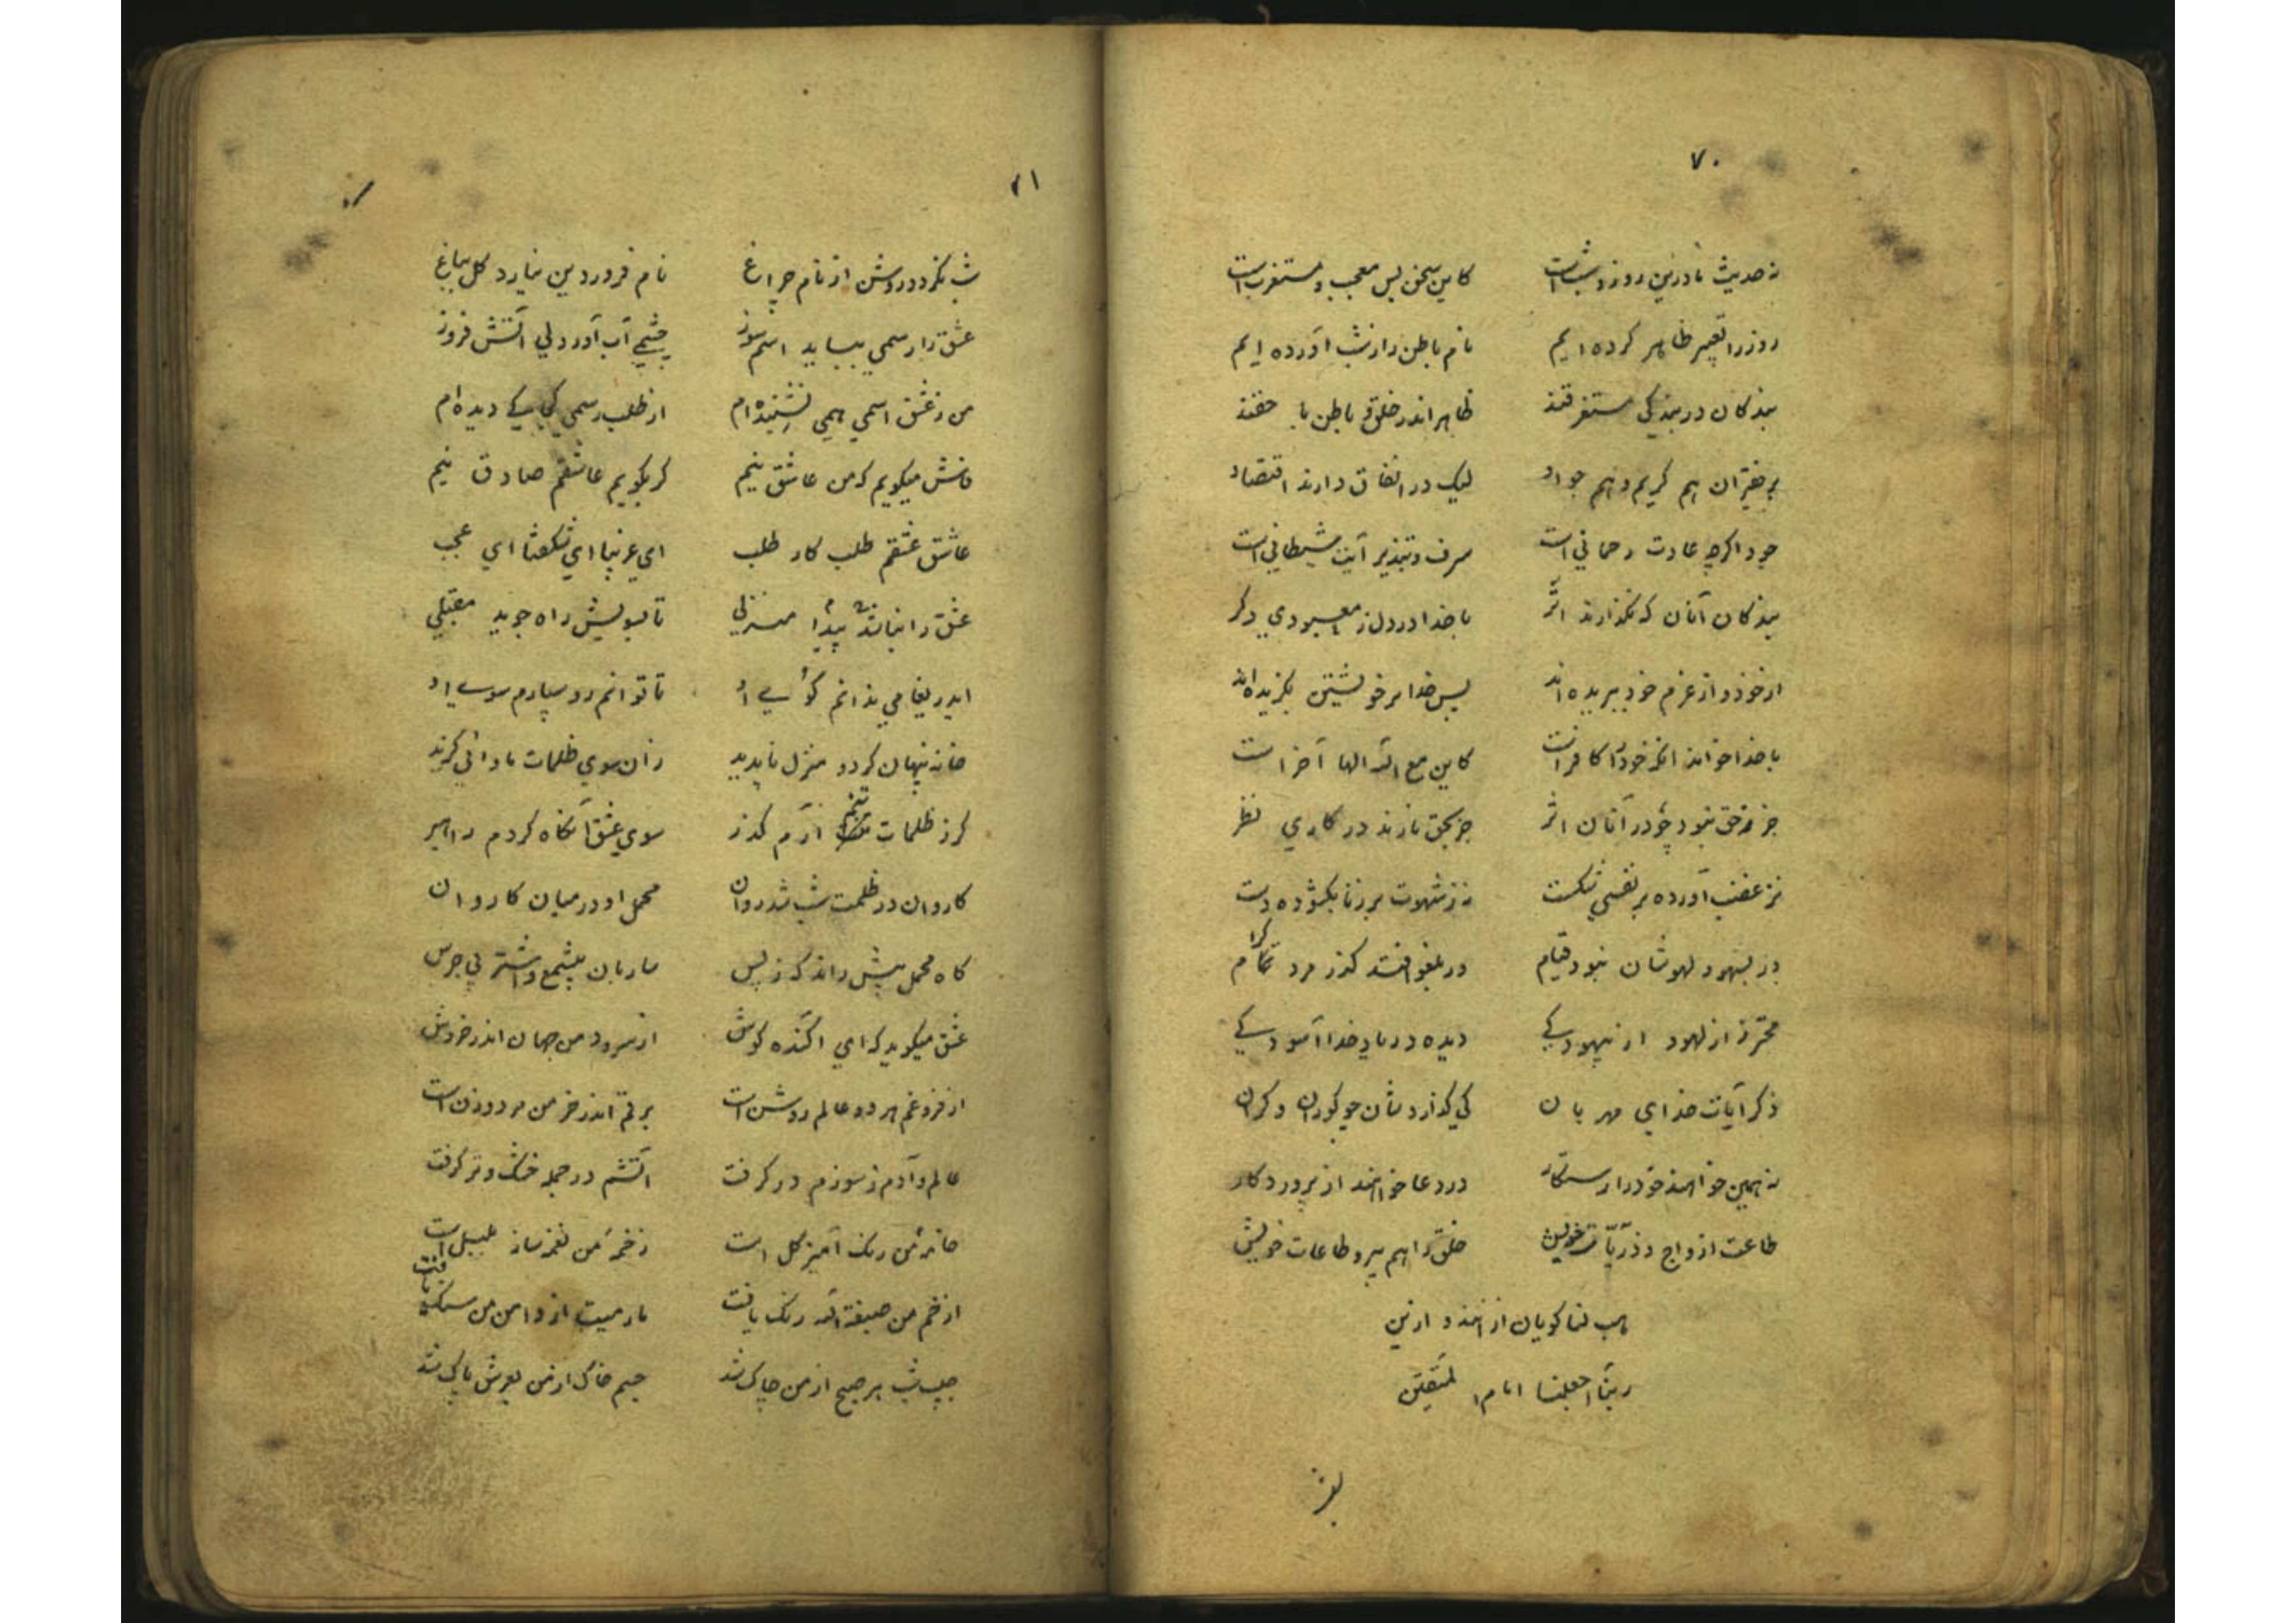 ۷۰
نه حدیث نادر این روز و شب است کاین سخن بس معجب و مستغرب است
روز را تعبیر ظاهر کرده ایم نام باطن را زشب آورده ایم
بندکان در بندکی مستغرقند ظاهر اندر خلق و باطن با حقند
بر فقیران هم کریم و هم جواد لیک در انفاق دارند اقتصاد
جود اکرچه عادت رحمانی است سرف و تبذیر آیت شیطانی است
بندکان آنان که نکذارند اثر با خدا در دل ز معبودی دکر
از خود و از عزم خود ببریده اند بس خدا بر خویشتن بکزیده اند
با خدا خواند انکر خود را کافر است کاین مع الله الها آخر است
جز حق نبود چو در آنان اثر جز بحق نارند در کاری نظر
نز غضب آورده بر نفسی شکست نه ز شهوت بر زنا بکشوده دست
در بسهو و لهوشان نبود قیام ور بلغو افتد کذر مرد کرام
محترز از لهو و از بیهودکی دیده در یاد خدا آسودکی
ذکر آیات خدای مهربان کی کذاردشان چو کوران و کران
نه همین خواهند خود را رستکار در دعا خواهند از پروردکار
طاعت ازواج و ذریات خویش خلق را هم پیرو طاعات خویش
هب لنا کویان از انند و ازین
ربنا اجعلنا اماما للمتقین
۷۱
شب نکردد روشن از نام چراغ نام فروردین نیارد کل بباغ
عشق را رسمی بباید اسم سوز چشمی آب آور دلی آتش فروز
من ز عشق اسمی همی نشنیده ام از طلب رسمی کجا کی دیده ام
فاش میکویم که من عاشق نیم کر بکویم عاشقم صادق نیم
عاشق عشقم طلب کار طلب ای غریبا ای شکفتا ای عجب
عشق را نباشد پیدا منزلی تا بسویش راه جوید مقبلی
ایدریغا می ندانم کوی او تا توانم رو سپارم سوی او
خانه پنهان کرد و منزل ناپدید زان سوی ظلمات
کر ز ظلمات آرم کذر سوی عشق آنکاه کردم راهبر
کاروان در ظلمت شب شد روان محمل او در میان کاروان
کاه محمل پیش راند که ز پس ساربان بیشمع و اشتر بی جرس
عشق میکوید که ای آکنده کوش از سرود من جهان اندر خروش
از فروغم هر دو عالم روشن است برقم اندر خرمن مرد و زن است
عالم و آدم ز سوزم در کرفت آتشم در جمله خشک و تر کرفت
خامه من رنک آمیز کل است زخمه من نغمه ساز بلبل است
از خم من صبغة الله رنک یافت مارمیت از دامن من سنک یافت
جیب شب بر صبح از من چاک شد جسم خاک از من بعرش پاک شد